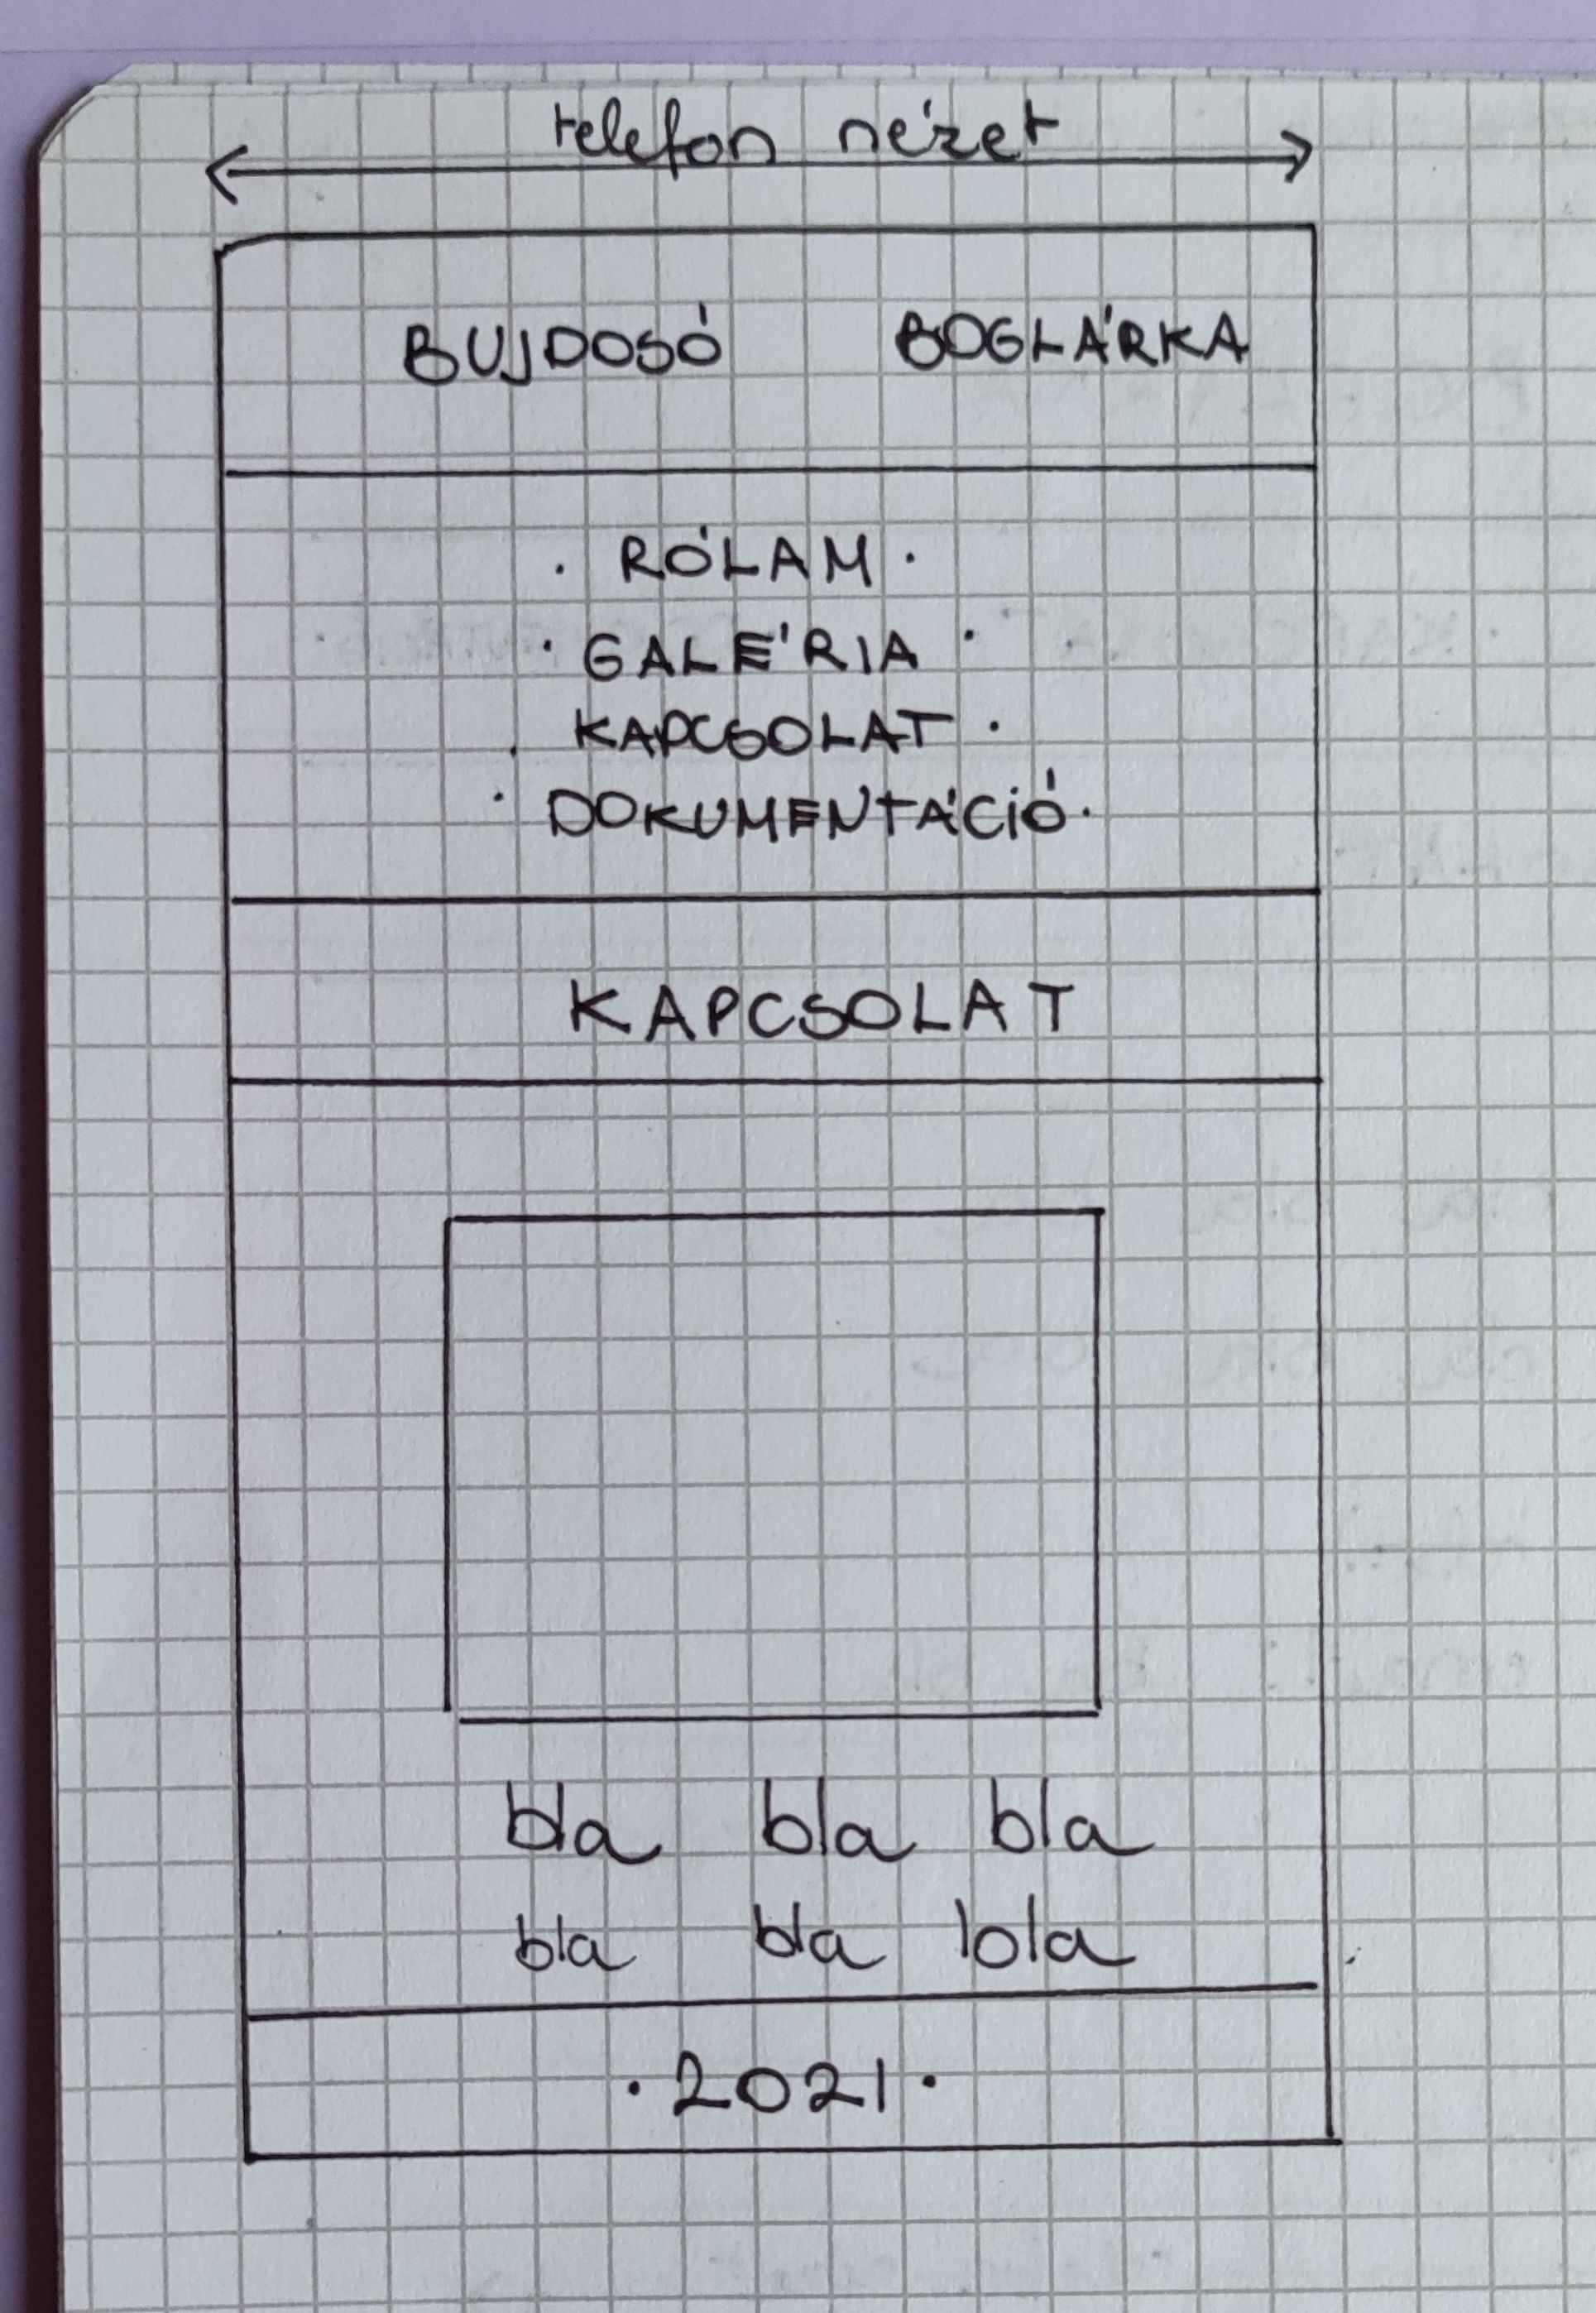 telefon nézet
BUJDOSÓ BOGLÁRKA
· RÓLAM ·
· GALÉRIA ·
· KAPCSOLAT ·
· DOKUMENTÁCIÓ ·
KAPCSOLAT
bla bla bla
bla bla bla
· 2021 ·